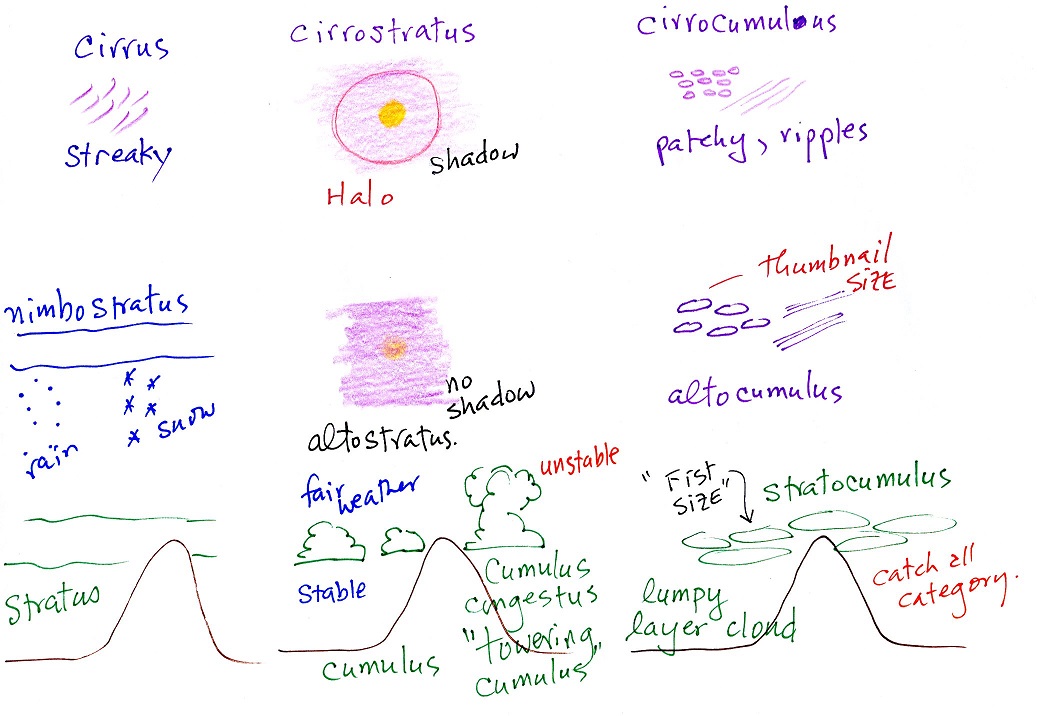 cirrus
streaky
cirrostratus
shadow
Halo
cirrocumulous
patchy, ripples
nimbostratus
rain
snow
no
shadow
altostratus.
thumbnail
SIZE
altocumulus
Stratus
fair weather
Stable
cumulus
unstable
Cumulus
congestus
"towering"
cumulus
"Fist
SIZE"
stratocumulus
lumpy
layer cloud
catch all
category.